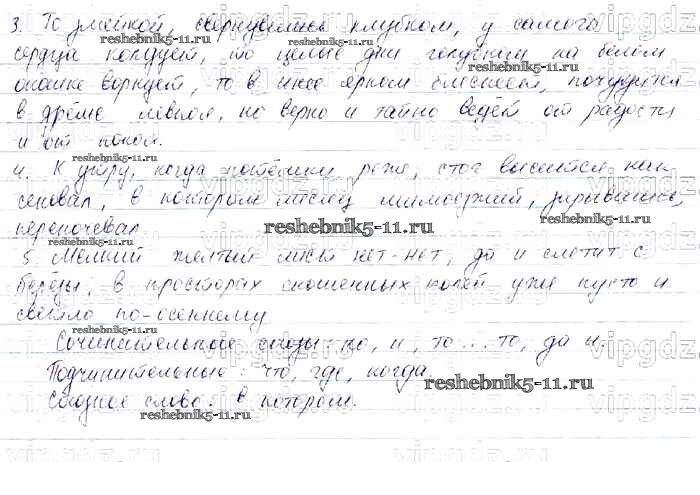 3. То змейкой свернувшись клубком, у самого
сердца колдует, то целые дни голубком на белом
окошке воркует, то в инее ярком блеснет, почудится
в дрёме левкоя, но верно и тайно ведёт от радости
и от покоя.
4. К утру, когда потёмки реже, стог высится, как
сеновал, в котором месяц мимоезжий, зарывшись,
переночевал.
5. Мелкий желтый лист нет-нет, да и слетит с
берёзы, в просторах скошенных полей уже пусто и
светло по-осеннему
Сочинительные союзы: но, и, то...то, да и.
Подчинительные: что, где, когда.
Союзное слово: в котором.
reshebnik5-11.ru
reshebnik5-11.ru
reshebnik5-11.ru
reshebnik5-11.ru
reshebnik5-11.ru
reshebnik5-11.ru
reshebnik5-11.ru
reshebnik5-11.ru
vipgdz.ru